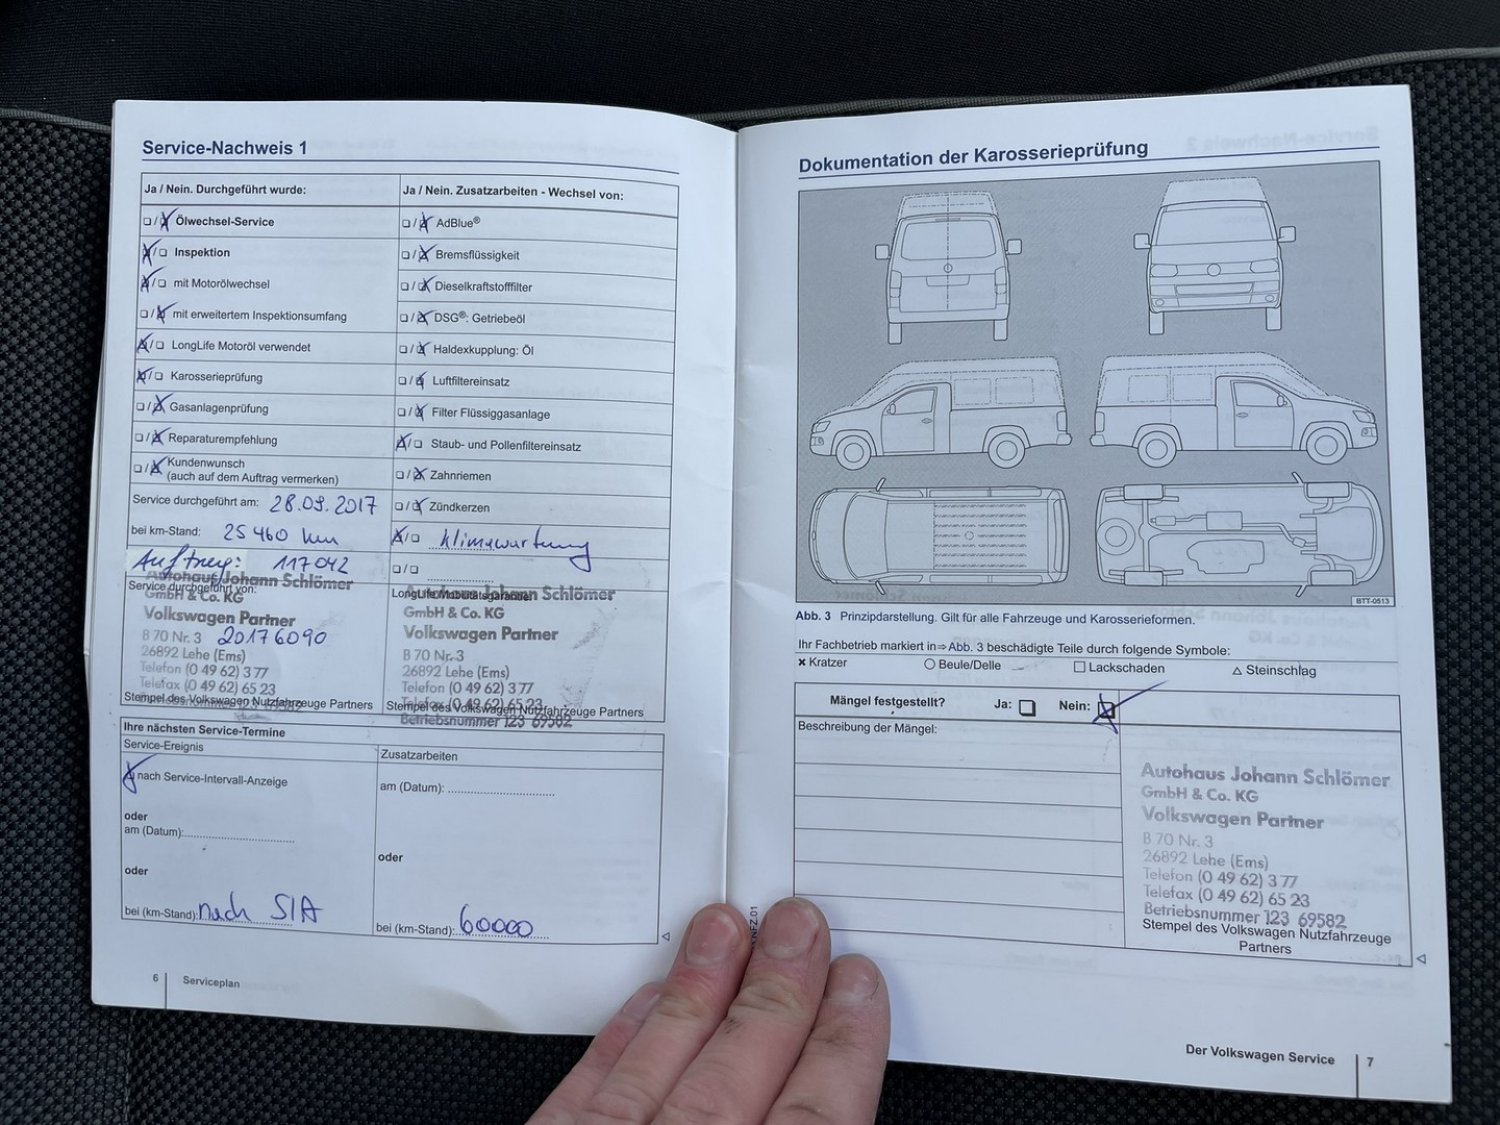 Service-Nachweis 1
Ja / Nein. Durchgeführt wurde:
Ölwechsel-Service
Inspektion
mit Motorölwechsel
mit erweitertem Inspektionsumfang
LongLife Motoröl verwendet
Karosserieprüfung
Gasanlagenprüfung
Reparaturempfehlung
Kundenwunsch
(auch auf dem Auftrag vermerken)
Service durchgeführt am: 28.09.2017
bei km-Stand: 25 460 km
Auftrag: 117042
Autohaus Johann Schlömer
Service durchgeführt von:
GmbH & Co. KG
Volkswagen Partner
B 70 Nr. 3 20176090
26892 Lehe (Ems)
Telefon (0 49 62) 3 77
Telefax (0 49 62) 65 23
Stempel des Volkswagen Nutzfahrzeuge Partners
Ja / Nein. Zusatzarbeiten - Wechsel von:
AdBlue®
Bremsflüssigkeit
Dieselkraftstofffilter
DSG®: Getriebeöl
Haldexkupplung: Öl
Luftfiltereinsatz
Filter Flüssiggasanlage
Staub- und Pollenfiltereinsatz
Zahnriemen
Zündkerzen
Klimawartung
Autohaus Johann Schlömer
LongLife Mobilitätsgarantie
GmbH & Co. KG
Volkswagen Partner
B 70 Nr. 3
26892 Lehe (Ems)
Telefon (0 49 62) 3 77
Telefax (0 49 62) 65 23
Stempel des Volkswagen Nutzfahrzeuge Partners
Betriebsnummer 123 69582
Ihre nächsten Service-Termine
Service-Ereignis
nach Service-Intervall-Anzeige
oder
am (Datum):
oder
bei (km-Stand): nach SIA
Zusatzarbeiten
am (Datum):
oder
bei (km-Stand): 60000
6 Serviceplan
Dokumentation der Karosserieprüfung
BTT-0513
Abb. 3 Prinzipdarstellung. Gilt für alle Fahrzeuge und Karosserieformen.
Ihr Fachbetrieb markiert in ⇒ Abb. 3 beschädigte Teile durch folgende Symbole:
Kratzer Beule/Delle Lackschaden Steinschlag
Mängel festgestellt? Ja: Nein:
Beschreibung der Mängel:
Autohaus Johann Schlömer
GmbH & Co. KG
Volkswagen Partner
B 70 Nr. 3
26892 Lehe (Ems)
Telefon (0 49 62) 3 77
Telefax (0 49 62) 65 23
Betriebsnummer 123 69582
Stempel des Volkswagen Nutzfahrzeuge
Partners
Der Volkswagen Service 7